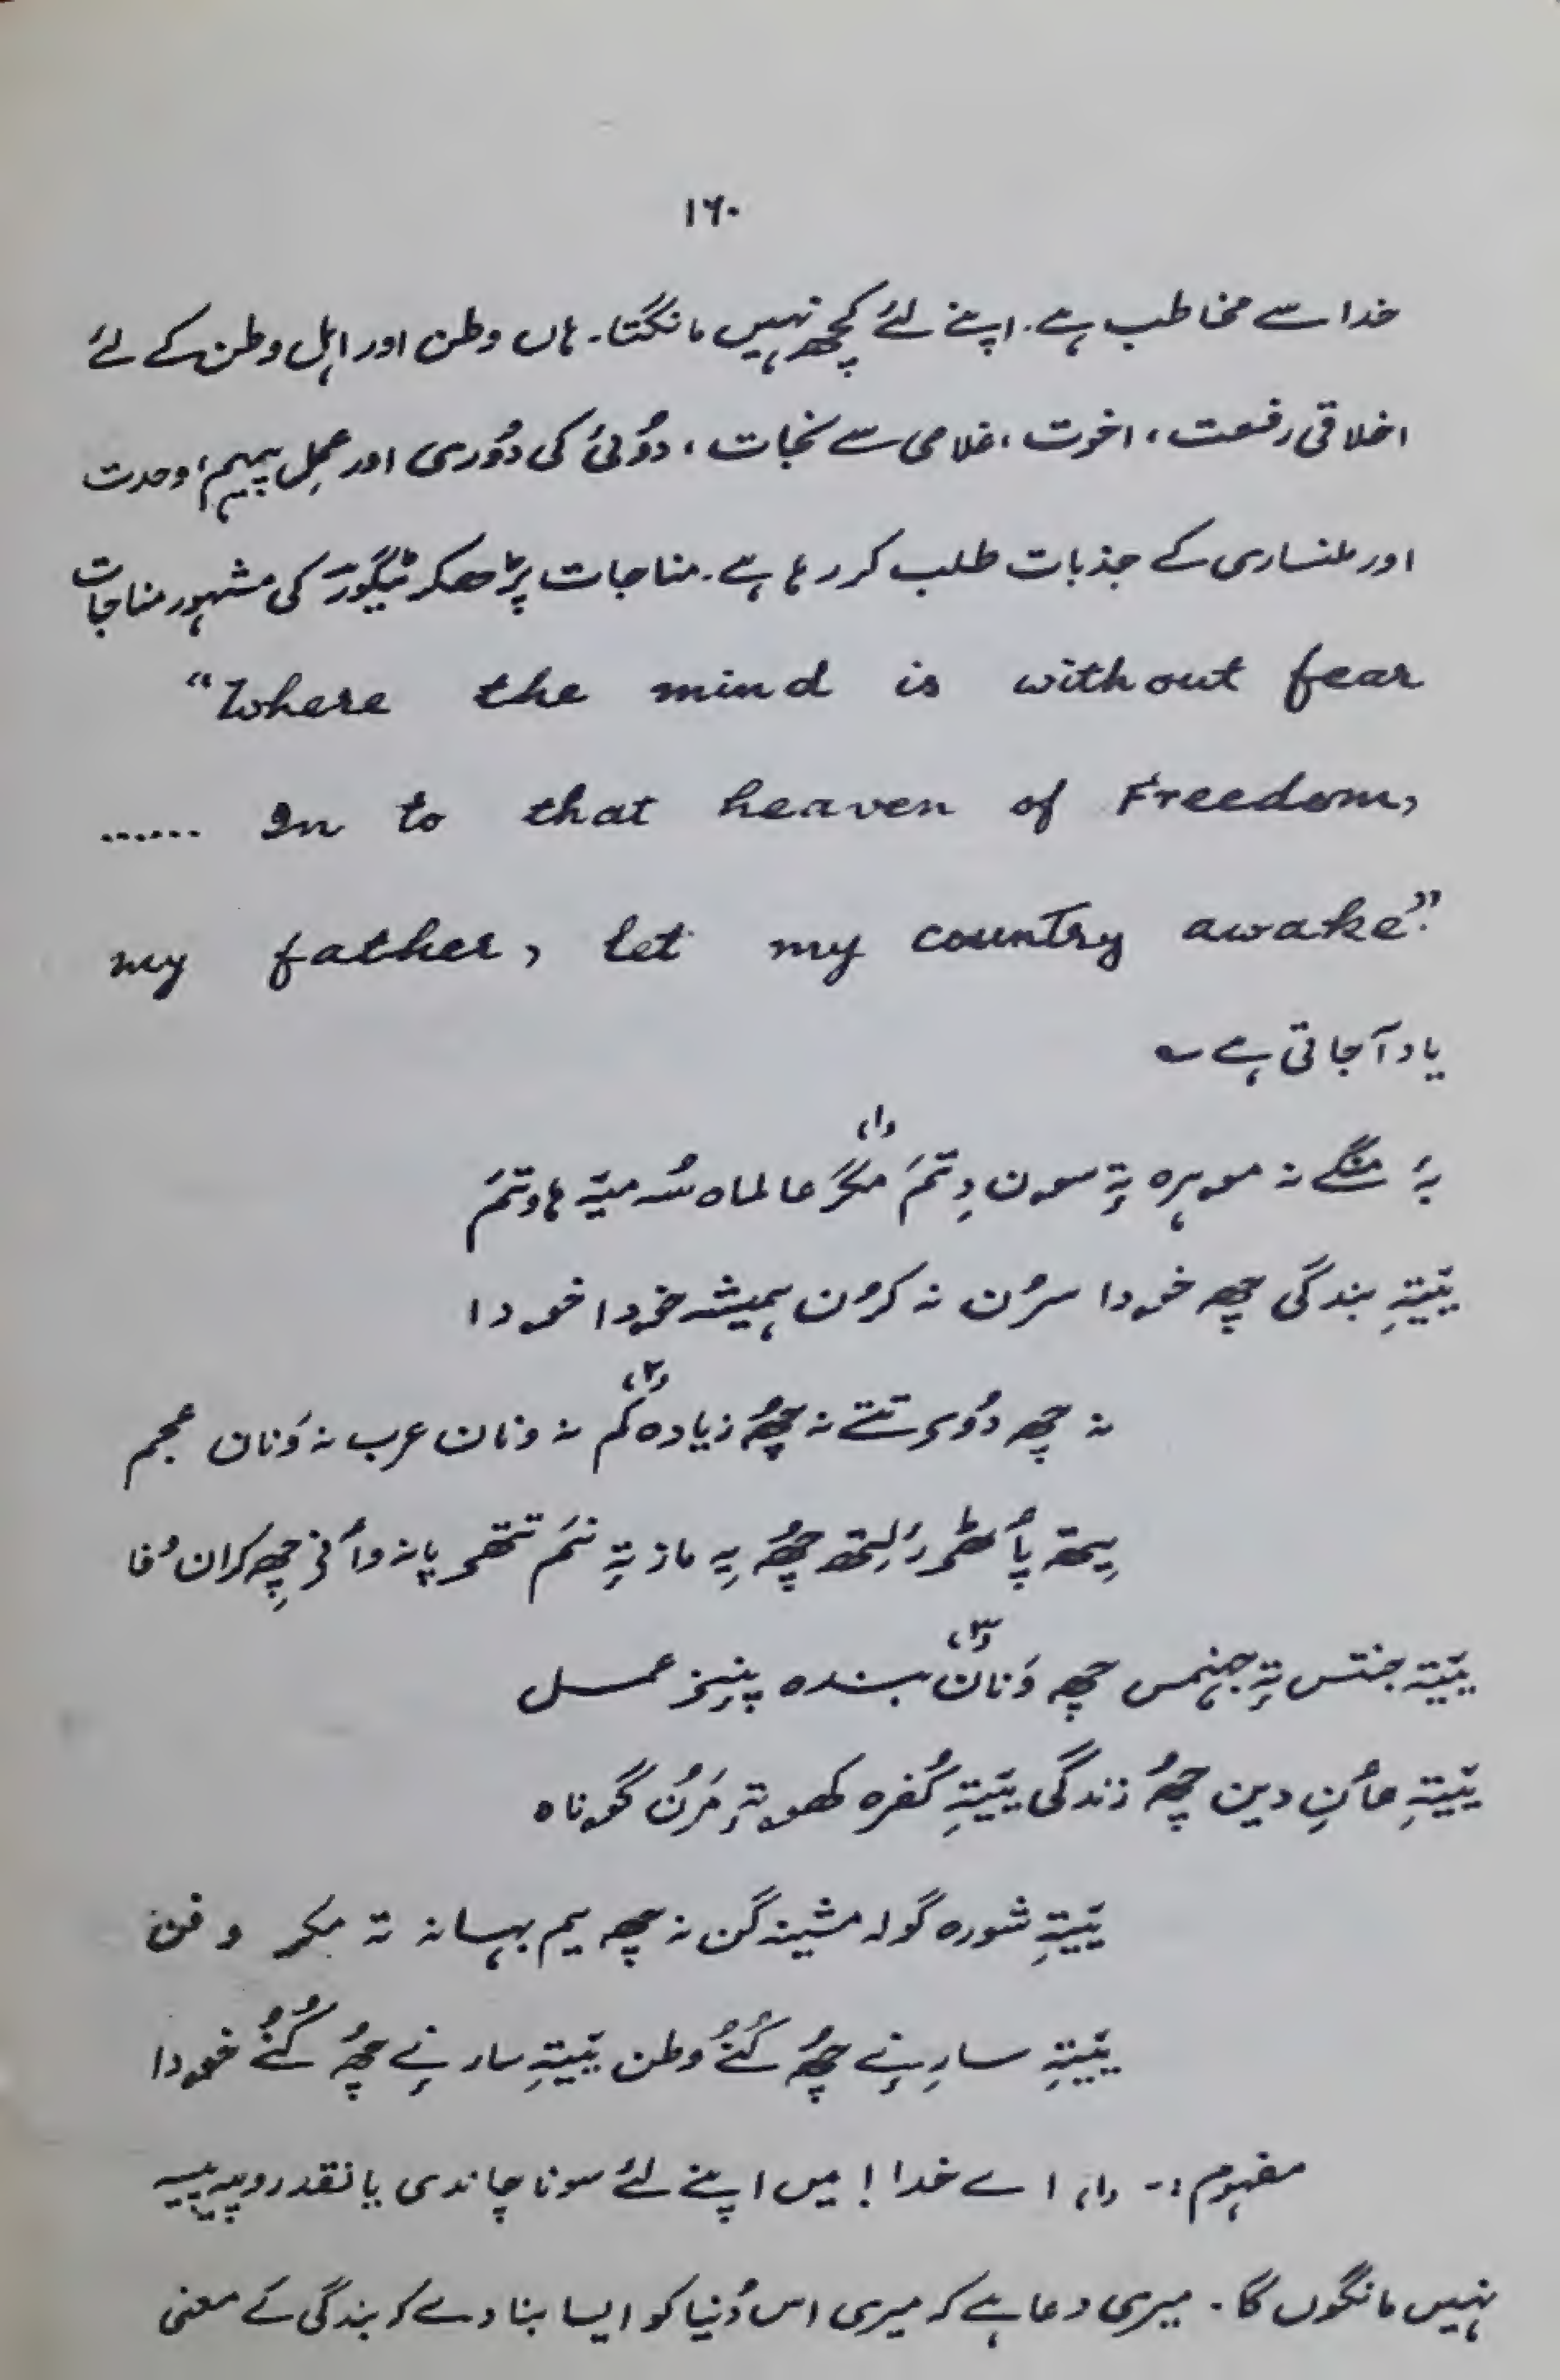 ۱۶۰
خدا سے مخاطب ہے۔ اپنے لئے کچھ نہیں مانگتا۔ ہاں وطن اور اہلِ وطن کے لئے
اخلاقی رفعت، اخوت، غلامی سے نجات، دوُئی کی دوُری اور عملِ پیہم، وحدت
اور ملنساری کے جذبات طلب کر رہا ہے۔ مناجات پڑھکر ٹیگور کی مشہور مناجات
“Where the mind is without fear
...... In to that heaven of Freedom,
my father, let my country awake.”
یاد آجاتی ہے ؎
بہٕ منگے نہ موہرہ تہٕ سون دِتمَ مگرَ عالماہ سُہ میٚہ ہاوتمَ (۱)
یَیتہِ بندگی چھِ خودا سرُن نہ کرُن ہمیشہ خودا خودا
نہ چھِ دوٗری تتے نہ چھُ زیادہ کم (۲) نہ ونان عرب نہ وَنان عجم
یِتھہٕ پأٹھۍ رَلِتھ چھُ یہِ ماز تہٕ ننم تتھۍ پانہ وأنۍ چھِ کران وفا
یَیتہِ جنتس تہٕ جہنمس چھِ وَنان (۳) بندہ پنِنۍ عمل
یَیتہِ مأنِ دین چھُ زندگی یَیتہِ کُفرہ کھوتہٕ مَرُن گوناہ
یَیتہِ شورہ گولہ مشینہ گن نہ چھِ یم بہانہ تہ مکر و فن
یَیتہِ سارِنے چھُ کُنُے وطن یَیتہِ سارنے چھُ کُنُے خودا
مفہوم :- (۱) اے خدا! میں اپنے لئے سونا چاندی یا نقد روپیہ پیسہ
نہیں مانگوں گا۔ میری دعا ہے کہ میری اس دُنیا کو ایسا بنا دے کہ بندگی کے معنی